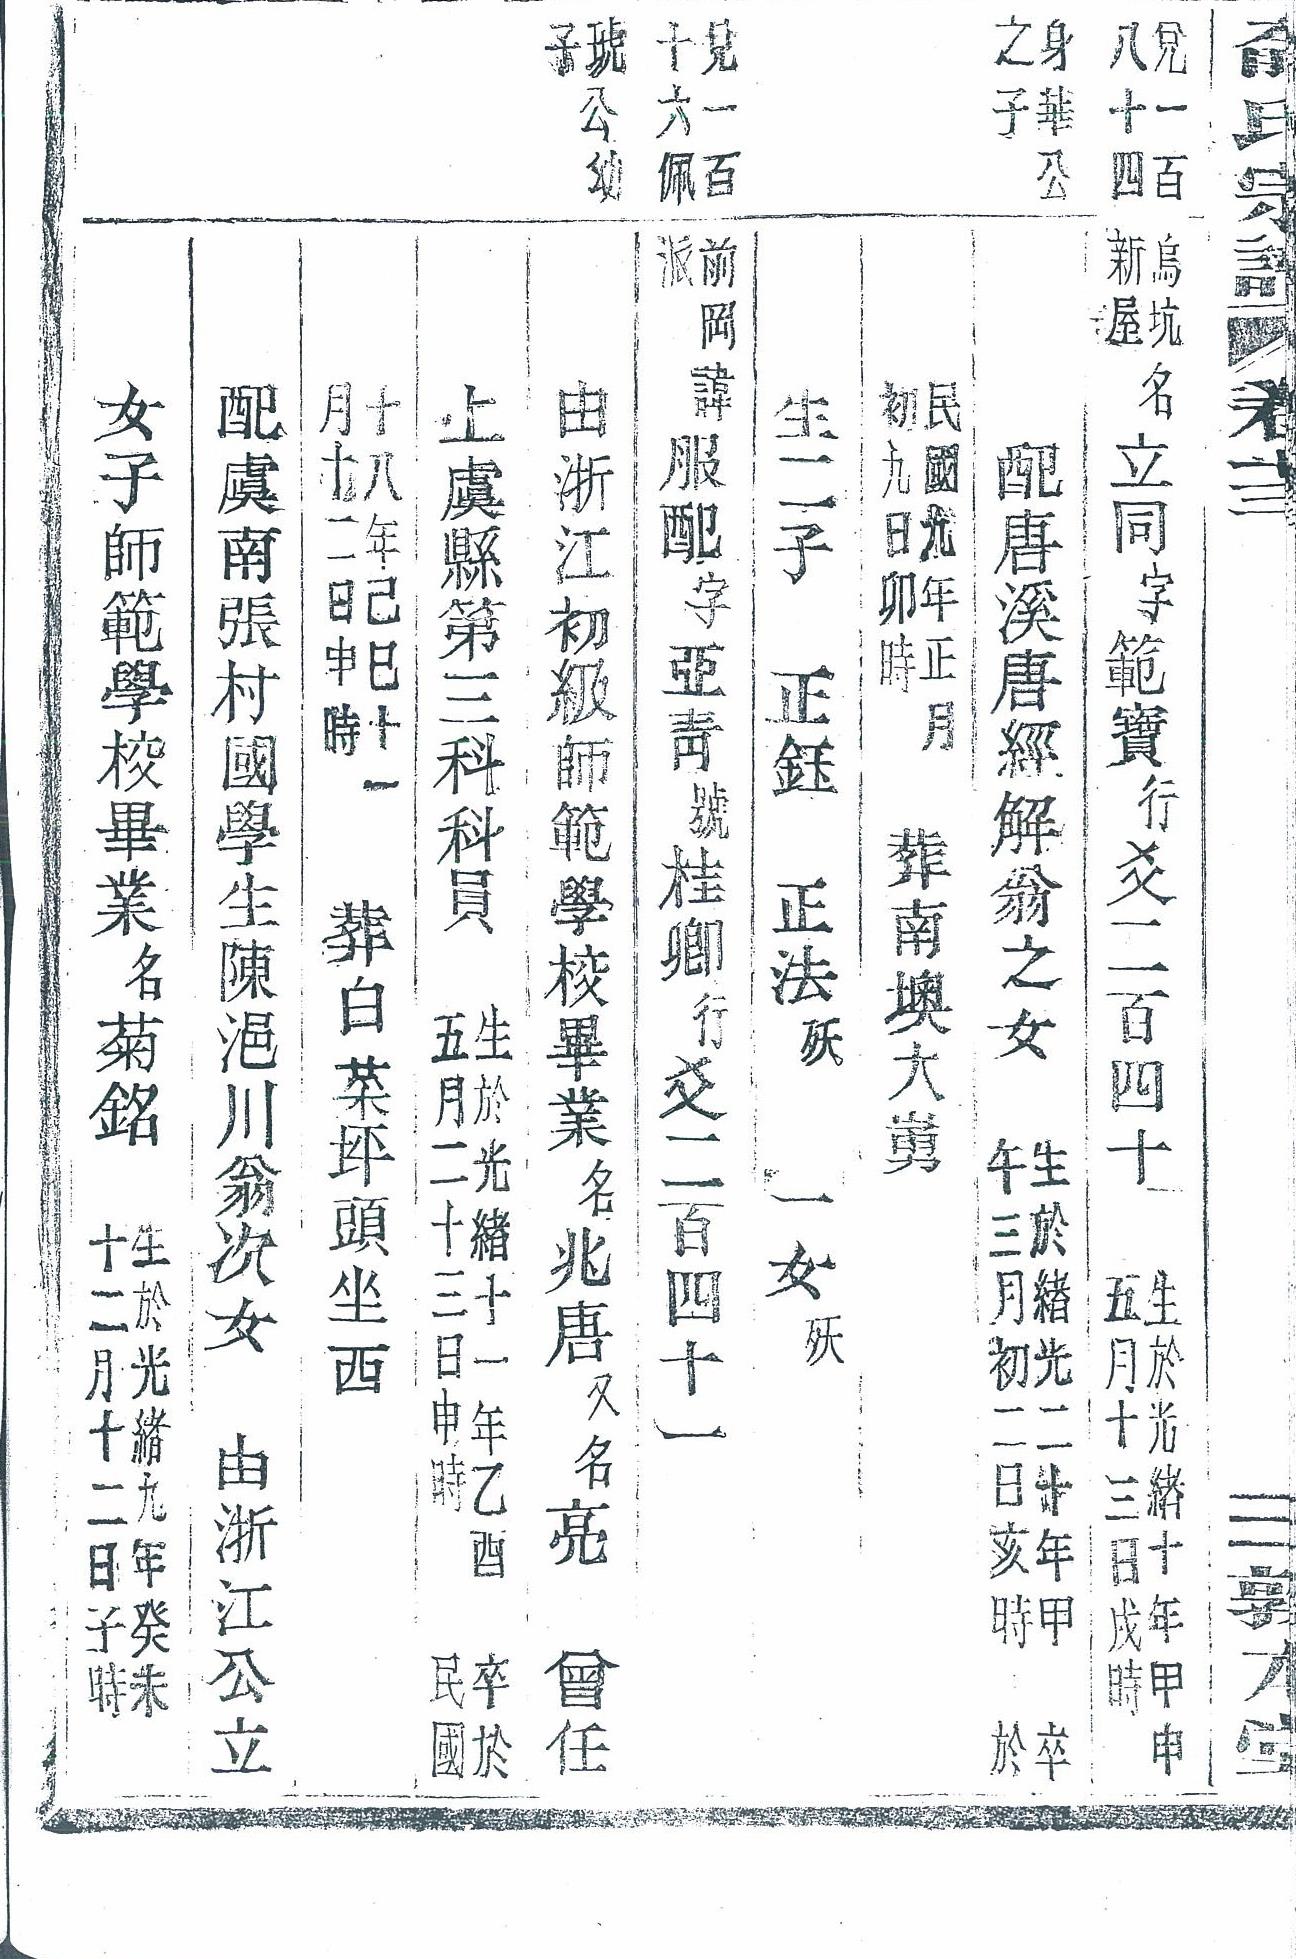 俞氏宗譜 卷三 三 敦本堂
兌一百八十四
烏坑新屋 名立同字範寶行爻二百四十 生於光緒十年甲申五月十三日戌時
身華公之子
配唐溪唐經解翁之女 生於緒光二十年甲午三月初二日亥時 卒於
民國九年正月初九日卯時 葬南墺大嶴
生二子 正鈺 正法殀 一女殀
兌一百十六佩
前岡派 諱服配字亞青號桂卿行爻二百四十一
琥公幼子
由浙江初級師範學校畢業名兆唐又名亮 曾任
上虞縣第三科科員 生於光緒十一年乙酉五月二十三日申時 卒於民國
十八年己巳十一月十二日申時 葬白菜坪頭坐西
配虞南張村國學生陳浥川翁次女 由浙江公立
女子師範學校畢業名菊銘 生於光緒九年癸未十二月十二日子時